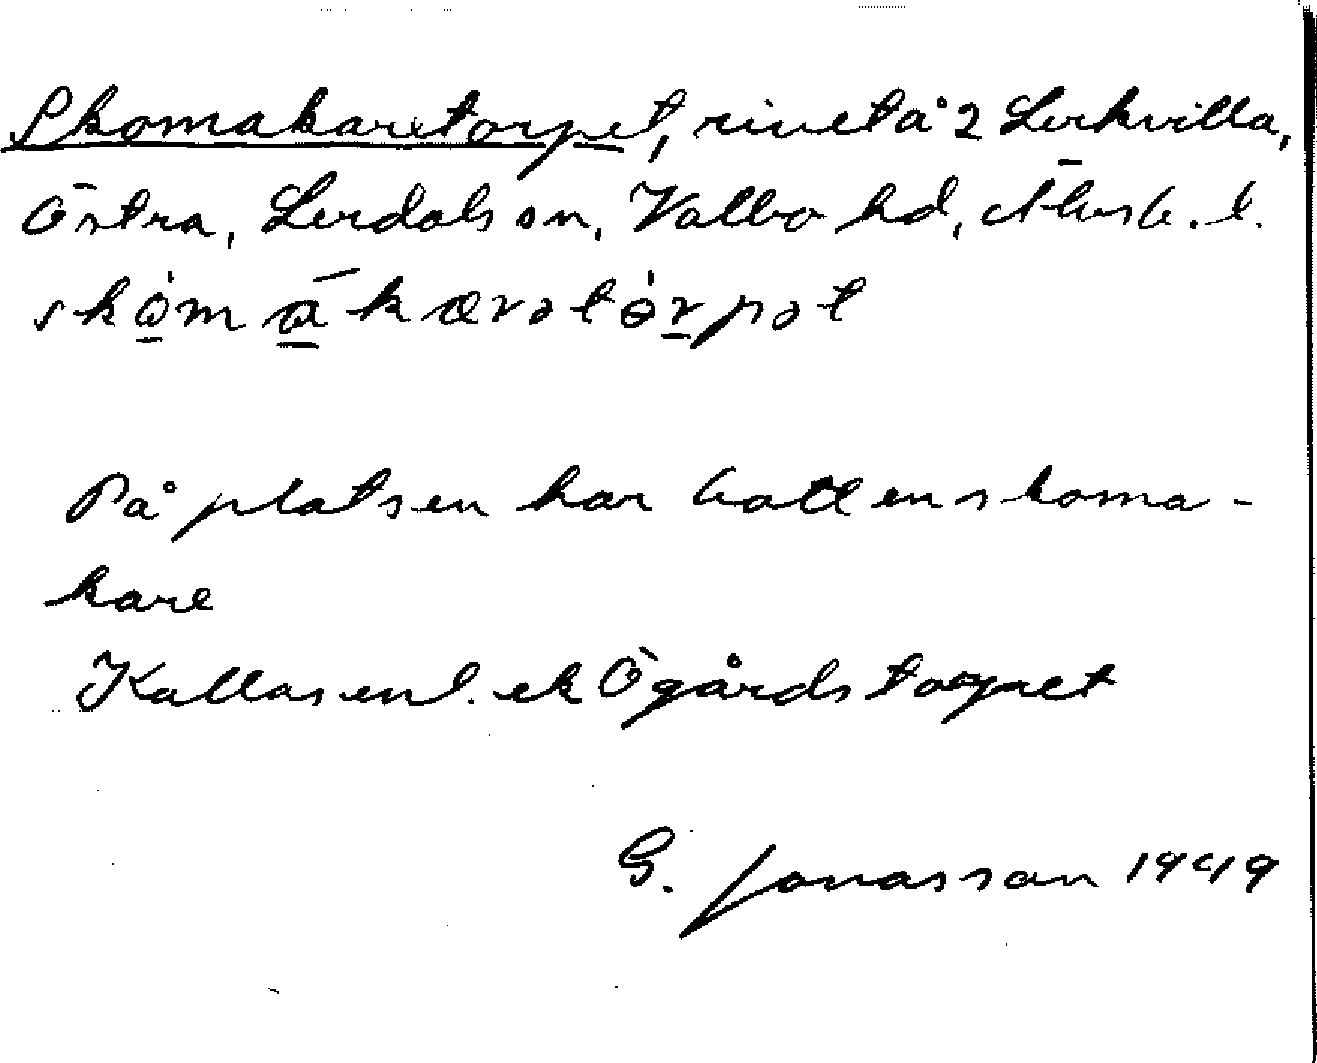 Skomakaretorpet, rivet å 2 Lerkvilla,
Östra, Lerdals sn, Valbo hd, Älvsb. l.
skòmākarətòrpət
På platsen har bott en skoma-
kare
Kallas enl. ek Ögårdstorpet
G. Jonasson 1949